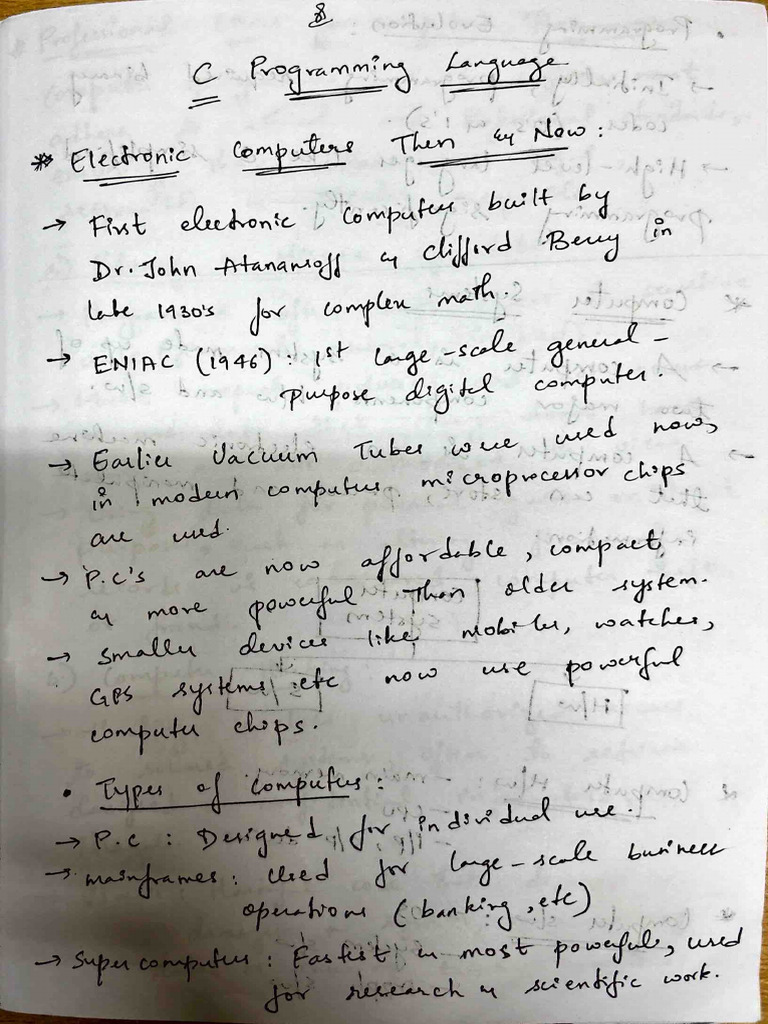 C Programming Language
* Electronic Computers Then & Now :
→ First electronic Computer built by
Dr. John Atanansoff & Clifford Berry in
late 1930's for complex math.
→ ENIAC (1946) : 1st large-scale general-
purpose digital computer.
→ Earlier Vacuum Tubes were used now,
in modern computers microprocessor chips
are used.
→ P.C's are now affordable, compact,
& more powerful than older system.
→ Smaller devices like mobiles, watches,
GPS systems etc now use powerful
computer chips.
• Types of Computers :
→ P.C : Designed for individual use.
→ mainframes : Used for large-scale business
operations (banking, etc)
→ Super computers : Fastest & most powerful, used
for research & scientific work.